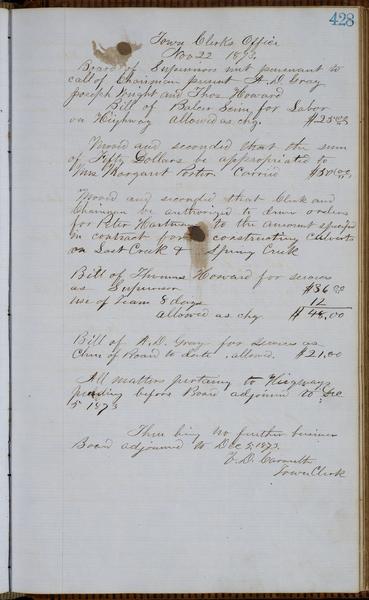 428
Town Clerks Office
Nov 22 1873.
Board of Supervisors met persuant to
call of Chairman present A. D. Gray
Joseph Wright and Thos Howard
Bill of Balser for Labor
on Highway allowed as chg. $25.00
Moved and seconded that the sum
of Fifty Dollars be appropriated to
Mrs Margaret Porter Carried $50.00
Moved and seconded that Clerk and
Chairman be authorized to draw orders
for Peter Hartman to the amount specified
in contract for constructing Culverts
on Lost Creek & Spring Creek
Bill of Thomas Howard for services
as Supervisor $36.00
Use of Team 8 days 12
allowed as chg $48.00
Bill of A. D. Gray for Services as
Chm of Board to date. allowed. $21.00
All matters pertaing to Higways
pending before Board adjourned to Dec
5 1873
Thier being no further business
Board adjourned to Dec 5, 1873.
D.
Town Clerk